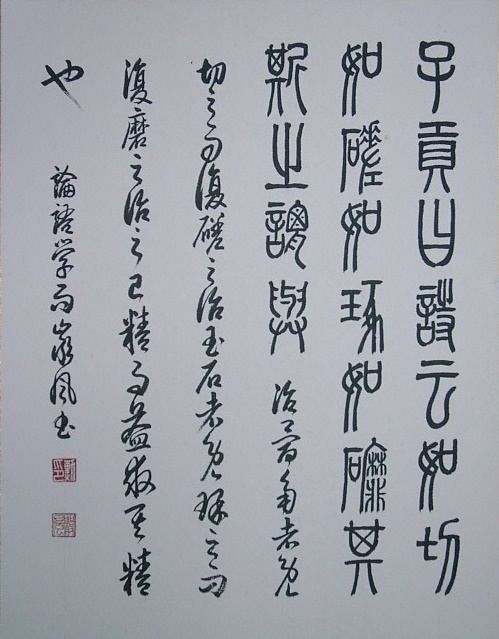 子貢曰詩云如切
如磋如琢如磨其
斯之謂與 治骨角者既
切之而復磋之治玉石者既琢之而
復磨之治之已精而益求其精
也 論語学而 風書